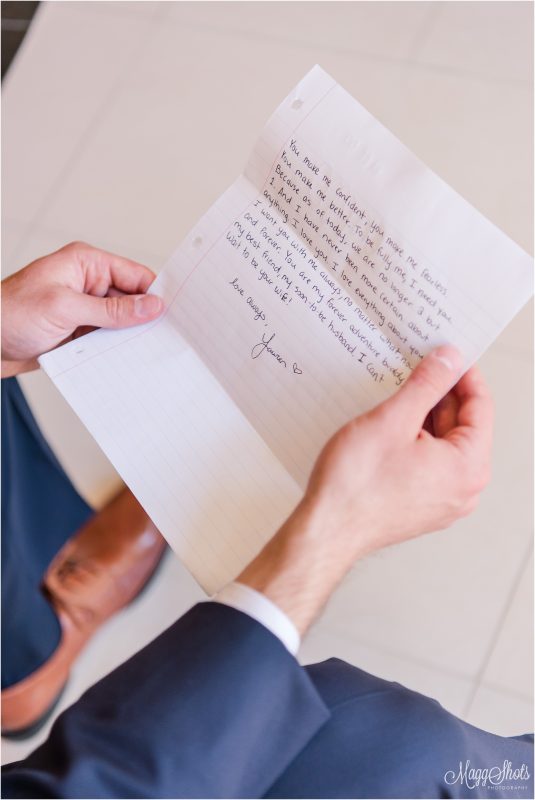 You make me confident, you make me fearless
You make me better. To be fully me I need you.
Because as of today, we are no longer 2 but
1. And I have never been more certain about
anything. I love you. I love everything about you.
I want you with me always, no matter what, now
and forever. You are my forever adventure buddy,
my best friend, my soon-to-be husband. I can't
wait to be your wife!
love always,
MaggShots
PHOTOGRAPHY